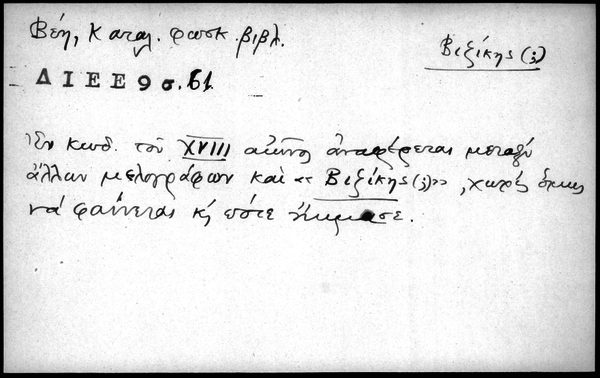 Βέη, Καταλ. φωσκ. βιβλ.
Βιζίκης (;)
ΔΙΕΕ 9 σ. 61.
Ἐν κωδ. τοῦ XVIII αἰῶνος ἀναφέρεται μεταξὺ
ἄλλων μελογράφων καὶ «Βιζίκης (;)», χωρὶς ὅμως
νά φαίνεται κ' πότε ἤκμασε.